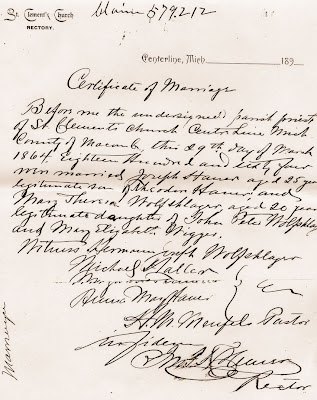 St. Clement's Church
RECTORY.
Claim 579212
Centerline, Mich 189
Certificate of Marriage
Before me the undersigned parish priest
of St. Clements church Centerline Mich
County of Macomb, this 29th day of March
1864 eighteen hundred and sixty four
was married Joseph Hauer aged 25 years
legitimate son of Theodor Hauer and
May Theresa Wolfschlager, aged 20 years
legitimate daughter of John Peter Wolfschlager
and May Elizabeth
Witness Hermann Joseph Wolfschlager
Michael
Pastor
Rector
Marriage